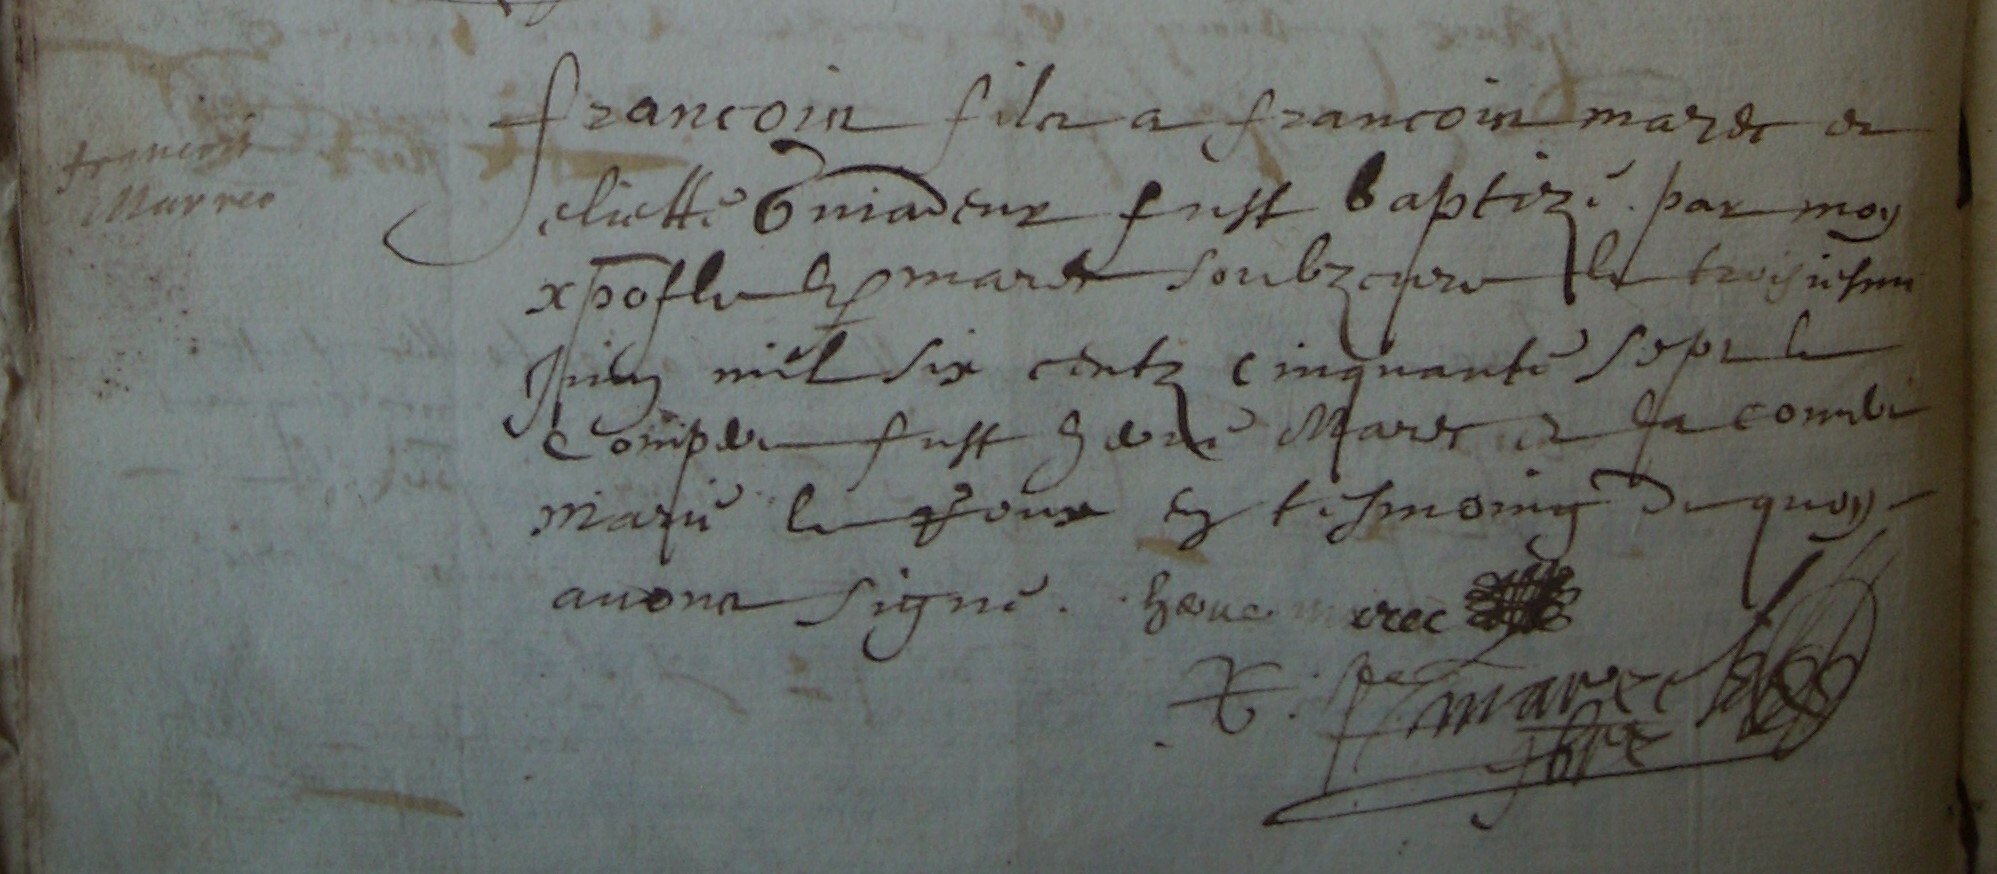 francois
Marrec
francois filz a francois marec et
fust baptizé par moy
xpofle marec soubzcure le troisiesme
Juin mil six centz cinquante sept le
Comper fust herue Marec et la comer
marie le en tesmoing de quoy
auons signé. herue marec
marec